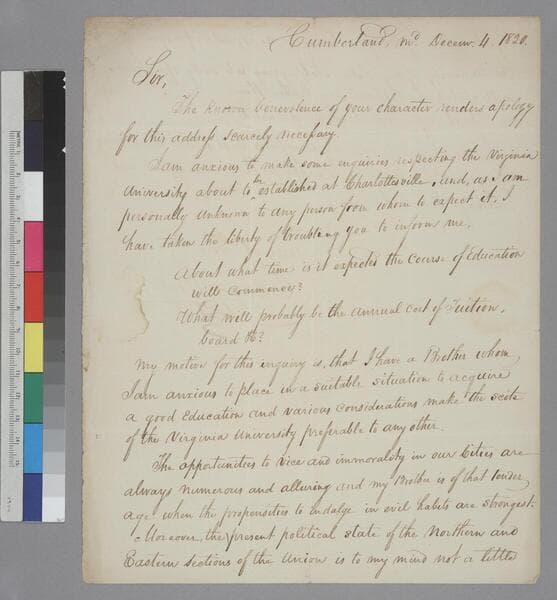 Cumberland, Md. Decem. 4. 1820.
Sir,
The known benevolence of your character renders apology
for this address scarcely necessary.
I am anxious to make some enquiries respecting the Virginia
University about to be established at Charlottesville, and, as I am
personally unknown to any person from whom to expect it, I
have taken the liberty of troubling you to inform me.
About what time is it expected the Course of Education
will commence?
What will probably be the annual cost of Tuition,
board &c?
My motive for this inquiry is, that I have a Brother whom
I am anxious to place in a suitable situation to acquire
a good Education and various considerations make the scite
of the Virginia University preferable to any other.
The opportunities to vice and immorality in our Cities are
always numerous and alluring and my Brother is of that tender
age when the propensities to indulge in evil habits are strongest.
Moreover, the present political state of the Northern and
Eastern sections of the Union is to my mind not a little